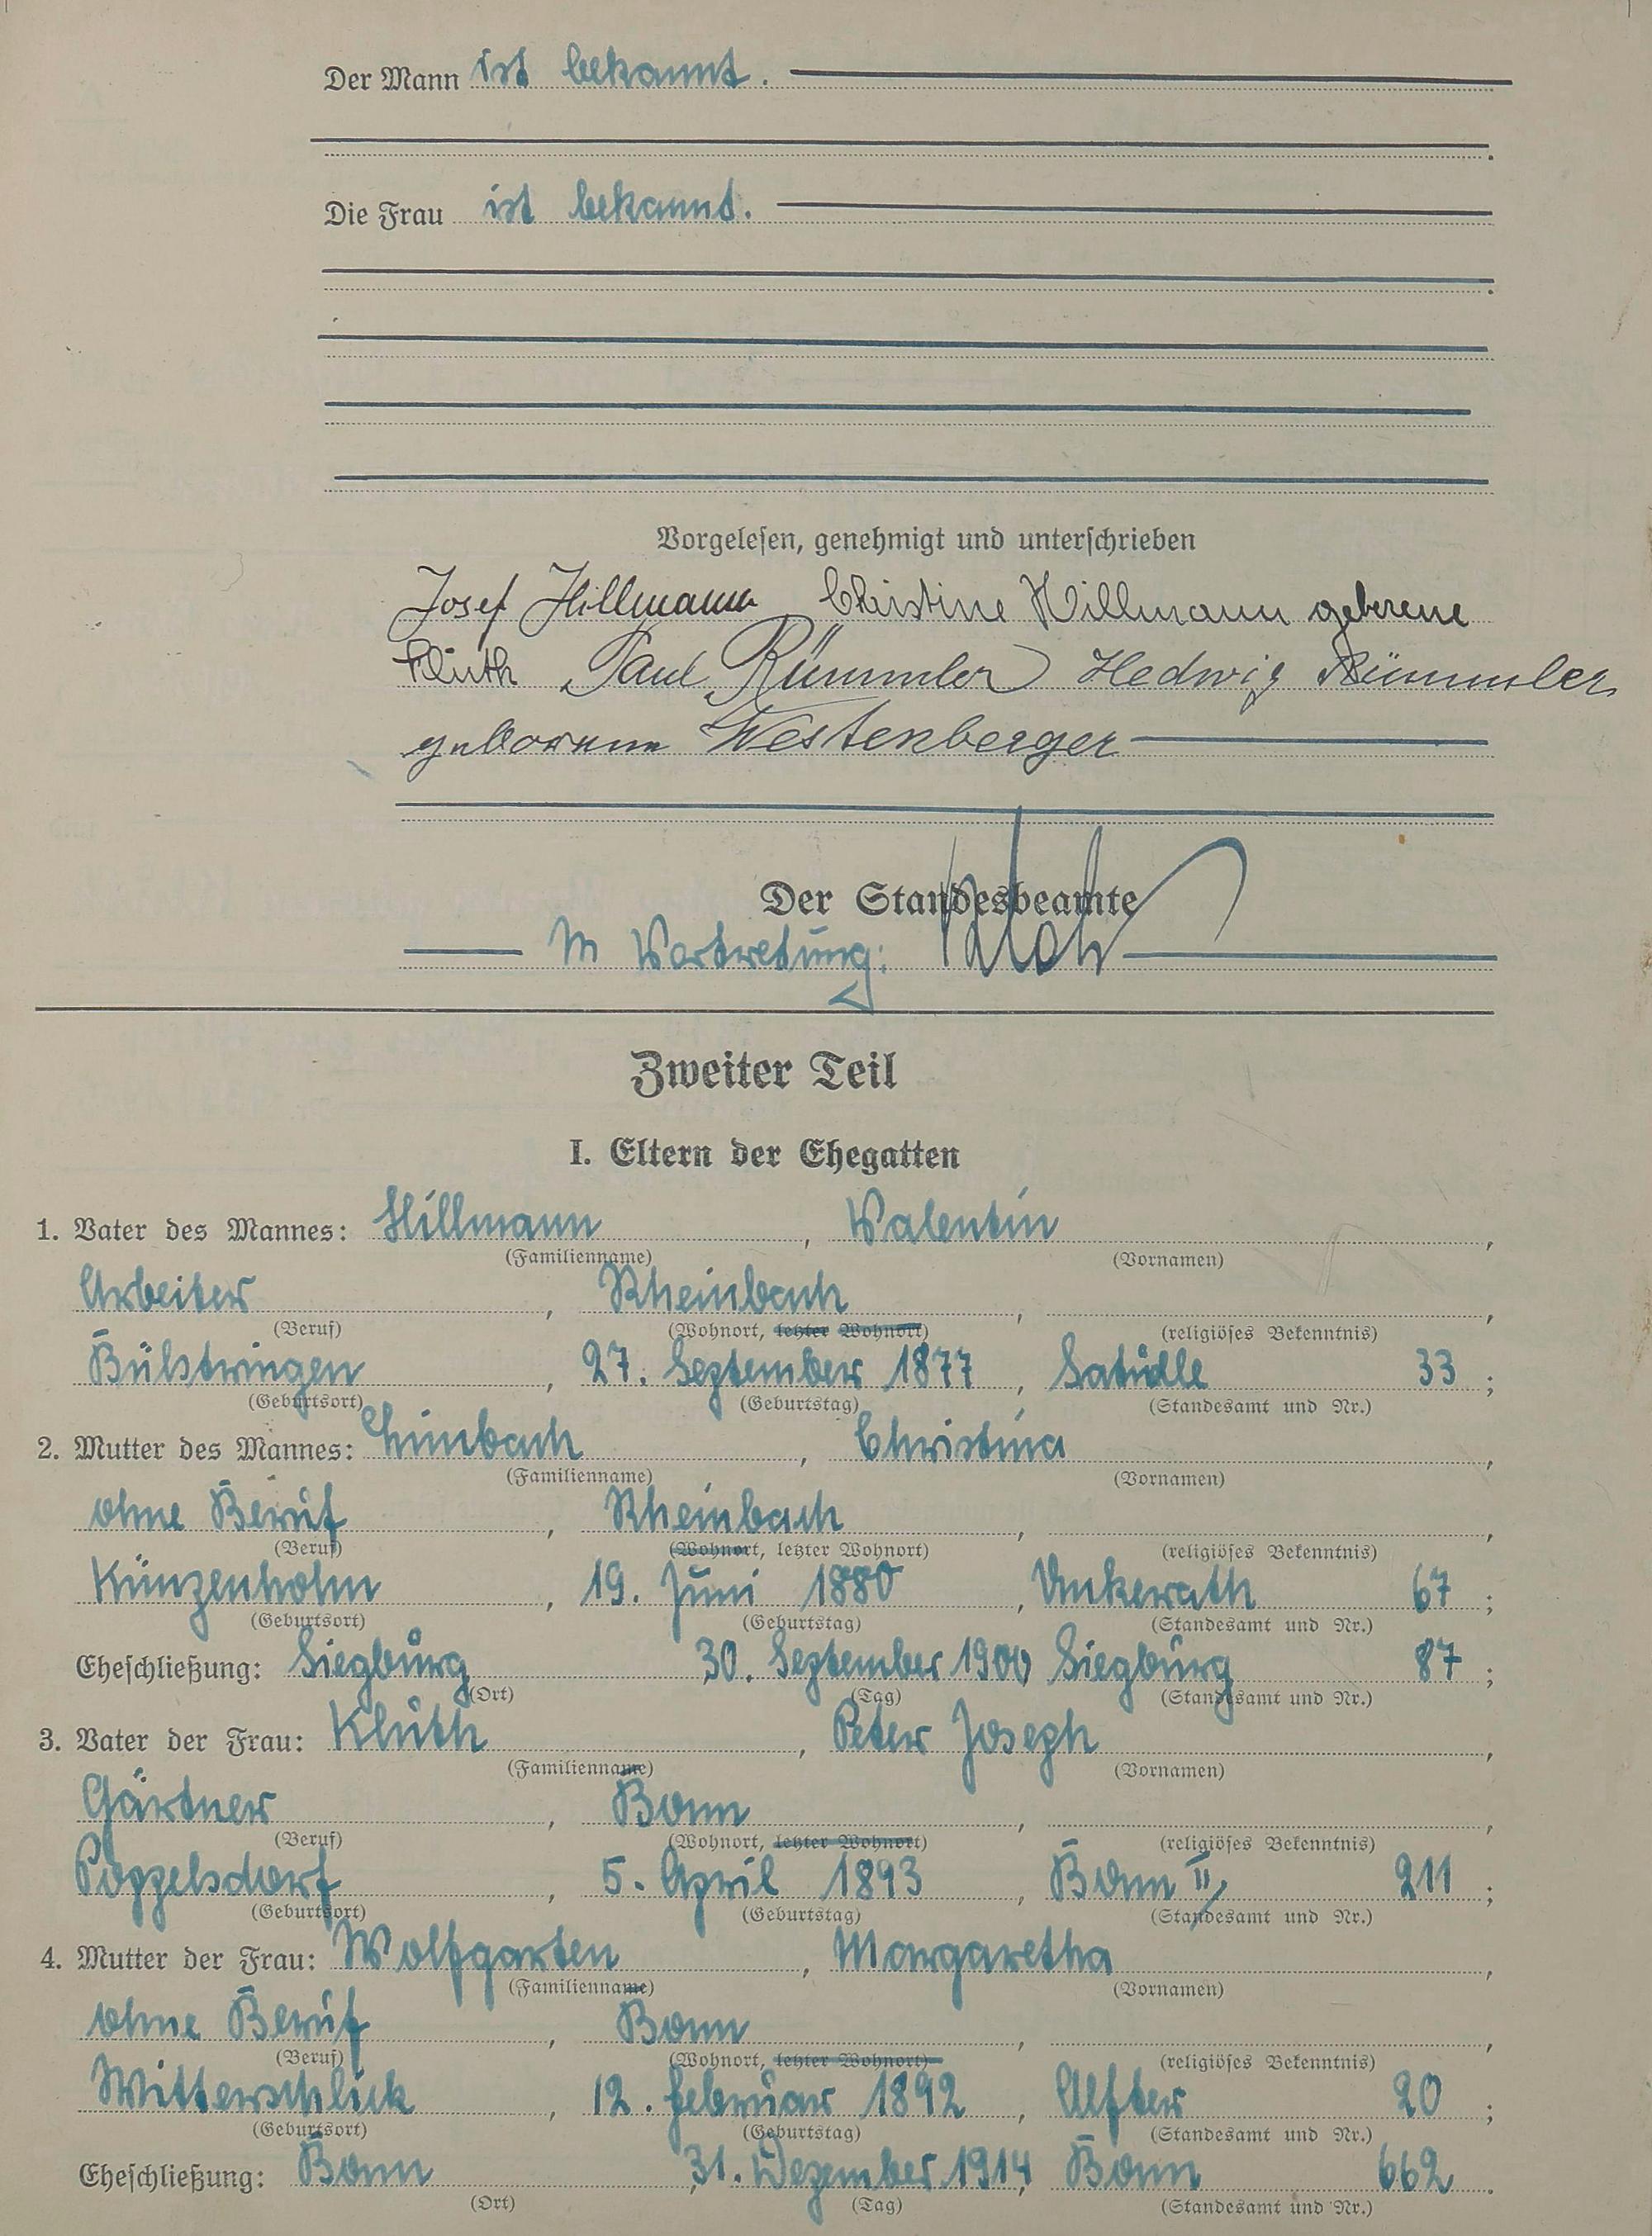 Der Mann ist bekannt.
Die Frau ist bekannt.
Vorgelesen, genehmigt und unterschrieben
Josef Hillmann Christine Hillmann geborene
Kluth Paul Rümmler Hedwig Rümmler
geborene Westenberger
Der Standesbeamte
In Vertretung:
Zweiter Teil
I. Eltern der Ehegatten
1. Vater des Mannes: Hillmann, Valentin,
(Familienname) (Vornamen)
Arbeiter, Rheinbach, ,
(Beruf) (Wohnort, letzter Wohnort) (religiöses Bekenntnis)
Bülstringen, 27. September 1877, Satuelle 33;
(Geburtsort) (Geburtstag) (Standesamt und Nr.)
2. Mutter des Mannes: Limbach, Christina,
(Familienname) (Vornamen)
ohne Beruf, Rheinbach, ,
(Beruf) (Wohnort, letzter Wohnort) (religiöses Bekenntnis)
Künzenhohn, 19. Juni 1880, Unkerath 67;
(Geburtsort) (Geburtstag) (Standesamt und Nr.)
Eheschließung: Siegburg, 30. September 1900, Siegburg 87;
(Ort) (Tag) (Standesamt und Nr.)
3. Vater der Frau: Kluth, Peter Joseph,
(Familienname) (Vornamen)
Gärtner, Bonn, ,
(Beruf) (Wohnort, letzter Wohnort) (religiöses Bekenntnis)
Poppelsdorf, 5. April 1893, Bonn II, 211;
(Geburtsort) (Geburtstag) (Standesamt und Nr.)
4. Mutter der Frau: Wolfgarten, Margaretha,
(Familienname) (Vornamen)
ohne Beruf, Bonn, ,
(Beruf) (Wohnort, letzter Wohnort) (religiöses Bekenntnis)
Witterschlick, 12. Februar 1892, Alfter 20;
(Geburtsort) (Geburtstag) (Standesamt und Nr.)
Eheschließung: Bonn, 31. Dezember 1914, Bonn 662.
(Ort) (Tag) (Standesamt und Nr.)